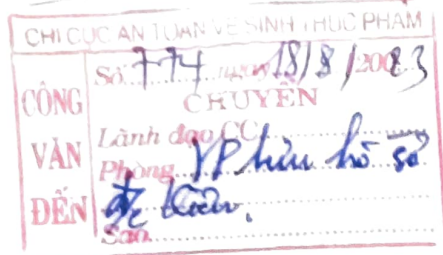 CHI CỤC AN TOÀN VỆ SINH THỰC PHẨM
CÔNG VĂN ĐẾN
Số 774 ngày 18/8/2023
CHUYỂN
Lãnh đạo CC
Phòng VP lưu hồ sơ
Sao